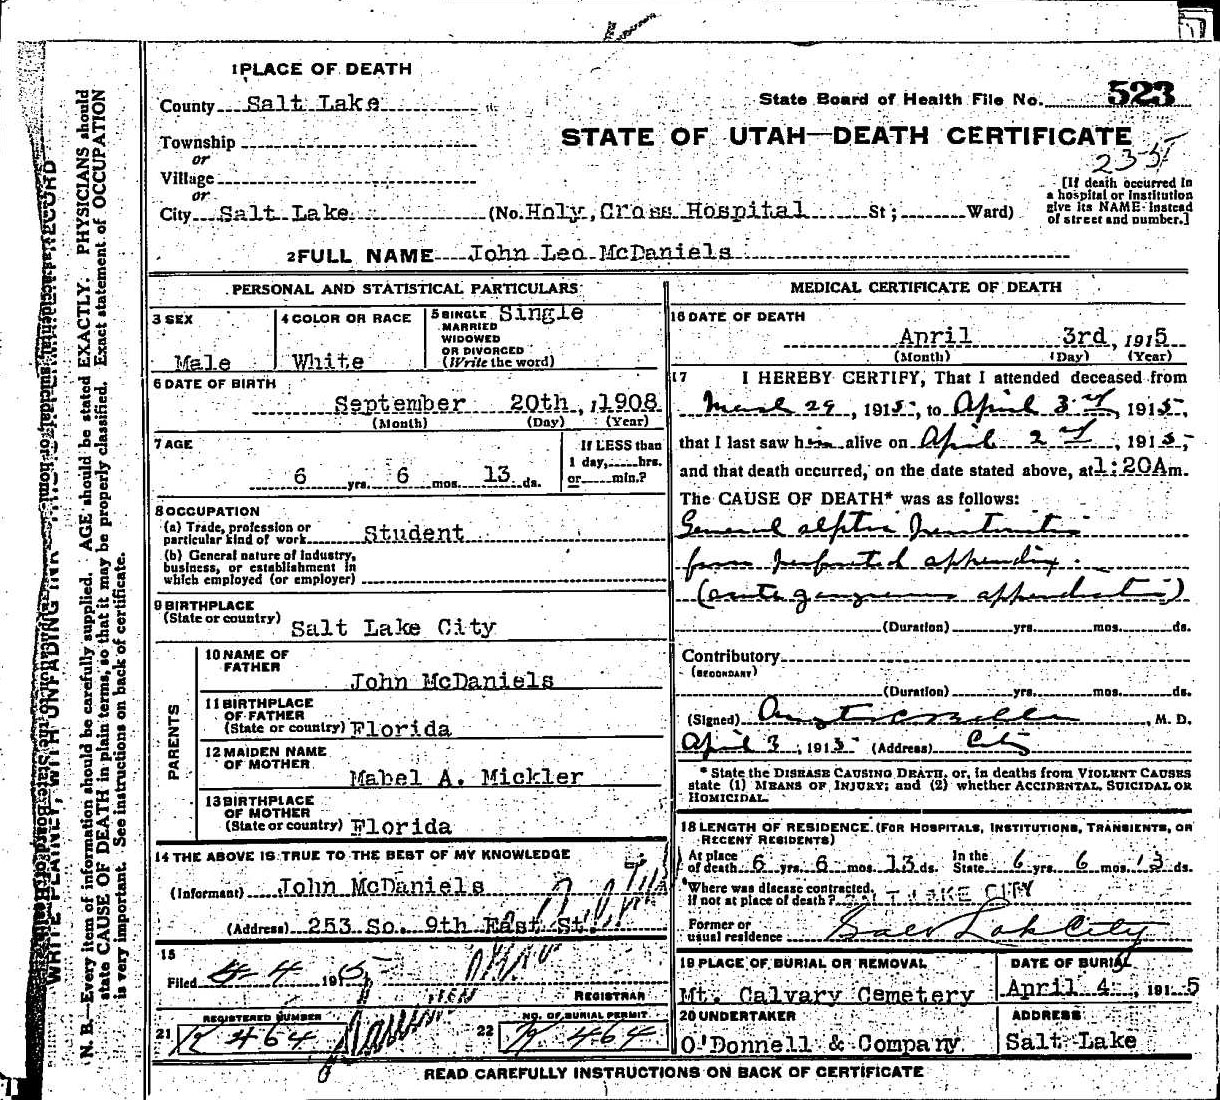 1 PLACE OF DEATH
County Salt Lake
State Board of Health File No. 523
Township
or
Village
or
STATE OF UTAH—DEATH CERTIFICATE
23-5
[If death occurred in a hospital or institution give its NAME instead of street and number.]
City Salt Lake (No. Holy Cross Hospital St; Ward)
2 FULL NAME John Leo McDaniels
PERSONAL AND STATISTICAL PARTICULARS
3 SEX Male
4 COLOR OR RACE White
5 SINGLE MARRIED WIDOWED OR DIVORCED (Write the word) Single
6 DATE OF BIRTH
September 20th, 1908
(Month) (Day) (Year)
7 AGE
6 yrs. 6 mos. 13 ds.
If LESS than 1 day, hrs. or min.?
8 OCCUPATION
(a) Trade, profession or particular kind of work Student
(b) General nature of Industry, business, or establishment in which employed (or employer)
9 BIRTHPLACE
(State or country) Salt Lake City
PARENTS
10 NAME OF FATHER John McDaniels
11 BIRTHPLACE OF FATHER (State or country) Florida
12 MAIDEN NAME OF MOTHER Mabel A. Mickler
13 BIRTHPLACE OF MOTHER (State or country) Florida
14 THE ABOVE IS TRUE TO THE BEST OF MY KNOWLEDGE
(Informant) John McDaniels
(Address) 253 So. 9th East St.
15
Filed 4 4 1915
REGISTRAR
REGISTERED NUMBER
21 464
NO. OF BURIAL PERMIT
22 464
MEDICAL CERTIFICATE OF DEATH
16 DATE OF DEATH
April 3rd, 1915
(Month) (Day) (Year)
17 I HEREBY CERTIFY, That I attended deceased from
March 29, 1915, to April 3rd, 1915,
that I last saw him alive on April 2nd, 1915,
and that death occurred, on the date stated above, at 1:20A m.
The CAUSE OF DEATH* was as follows:
General septic Peritonitis
from perforated appendix.
(acute gangrenous appendicitis)
(Duration) yrs. mos. ds.
Contributory
(SECONDARY)
(Duration) yrs. mos. ds.
(Signed) M. D.
April 3, 1915 (Address) City
* State the DISEASE CAUSING DEATH, or, in deaths from VIOLENT CAUSES
state (1) MEANS OF INJURY; and (2) whether ACCIDENTAL, SUICIDAL OR
HOMICIDAL.
18 LENGTH OF RESIDENCE (FOR HOSPITALS, INSTITUTIONS, TRANSIENTS, OR
RECENT RESIDENTS)
At place of death 6 yrs. 6 mos. 13 ds. In the State 6 yrs. 6 mos. 13 ds.
Where was disease contracted, if not at place of death? SALT LAKE CITY
Former or usual residence Salt Lake City
19 PLACE OF BURIAL OR REMOVAL
Mt. Calvary Cemetery
DATE OF BURIAL
April 4, 1915
20 UNDERTAKER
O'Donnell & Company
ADDRESS
Salt Lake
READ CAREFULLY INSTRUCTIONS ON BACK OF CERTIFICATE
WRITE PLAINLY, WITH UNFADING INK
N. B.—Every item of information should be carefully supplied. AGE should be stated EXACTLY. PHYSICIANS should
state CAUSE OF DEATH in plain terms, so that it may be properly classified. Exact statement of OCCUPATION
is very important. See instructions on back of certificate.